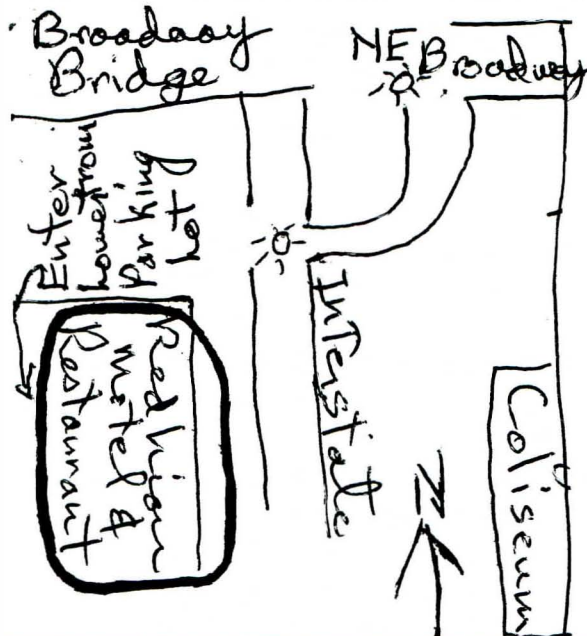 Broadway
Bridge
NE Broadway
Enter
lower from
Parking
Lot
Red Lion
Motel &
Restaurant
Interstate
Coliseum
N